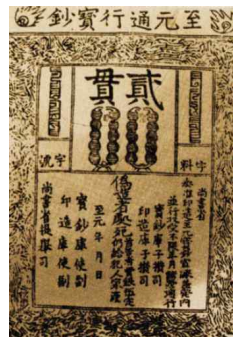 至元通行寶鈔
貳貫
字料
字號
尚書省
奏准印造至元寶鈔宣課差役內
並行收受不限年月諸路通行
寶鈔庫子攢司
印造庫子攢司
偽造者處死
首告者賞銀伍定
仍給犯人家產
至元 年 月 日
寶鈔庫使副
印造庫使副
尚書省提舉司